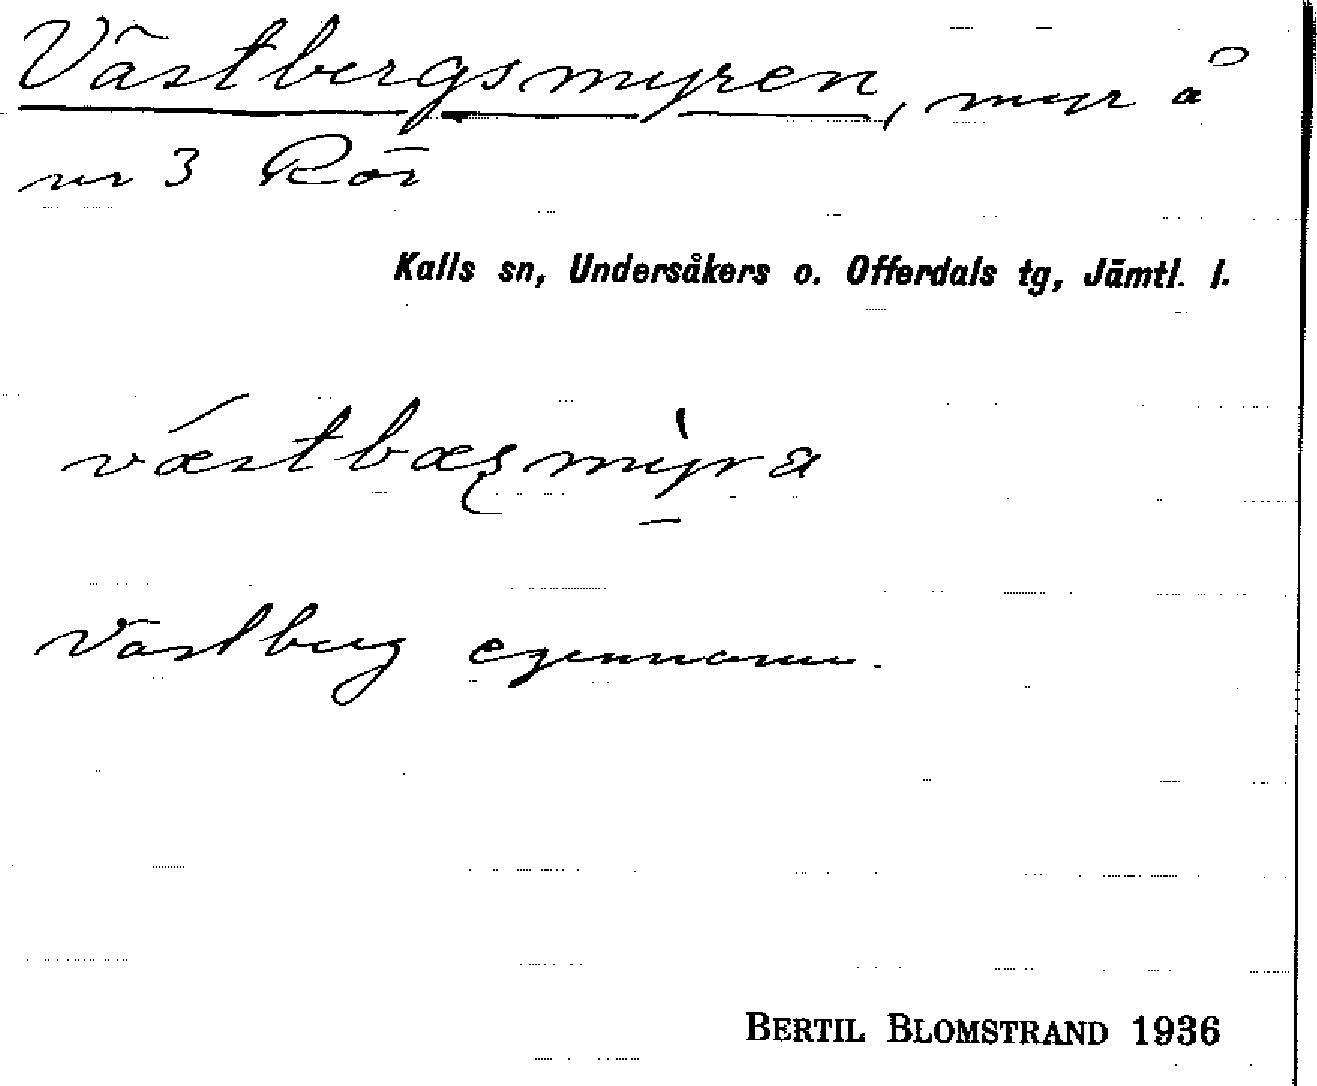 Västbergsmyren, myr å
nr 3 Rör
Kalls sn, Undersåkers o. Offerdals tg, Jämtl. l.
västbærsmỳra
Västberg egennamn.
BERTIL BLOMSTRAND 1936